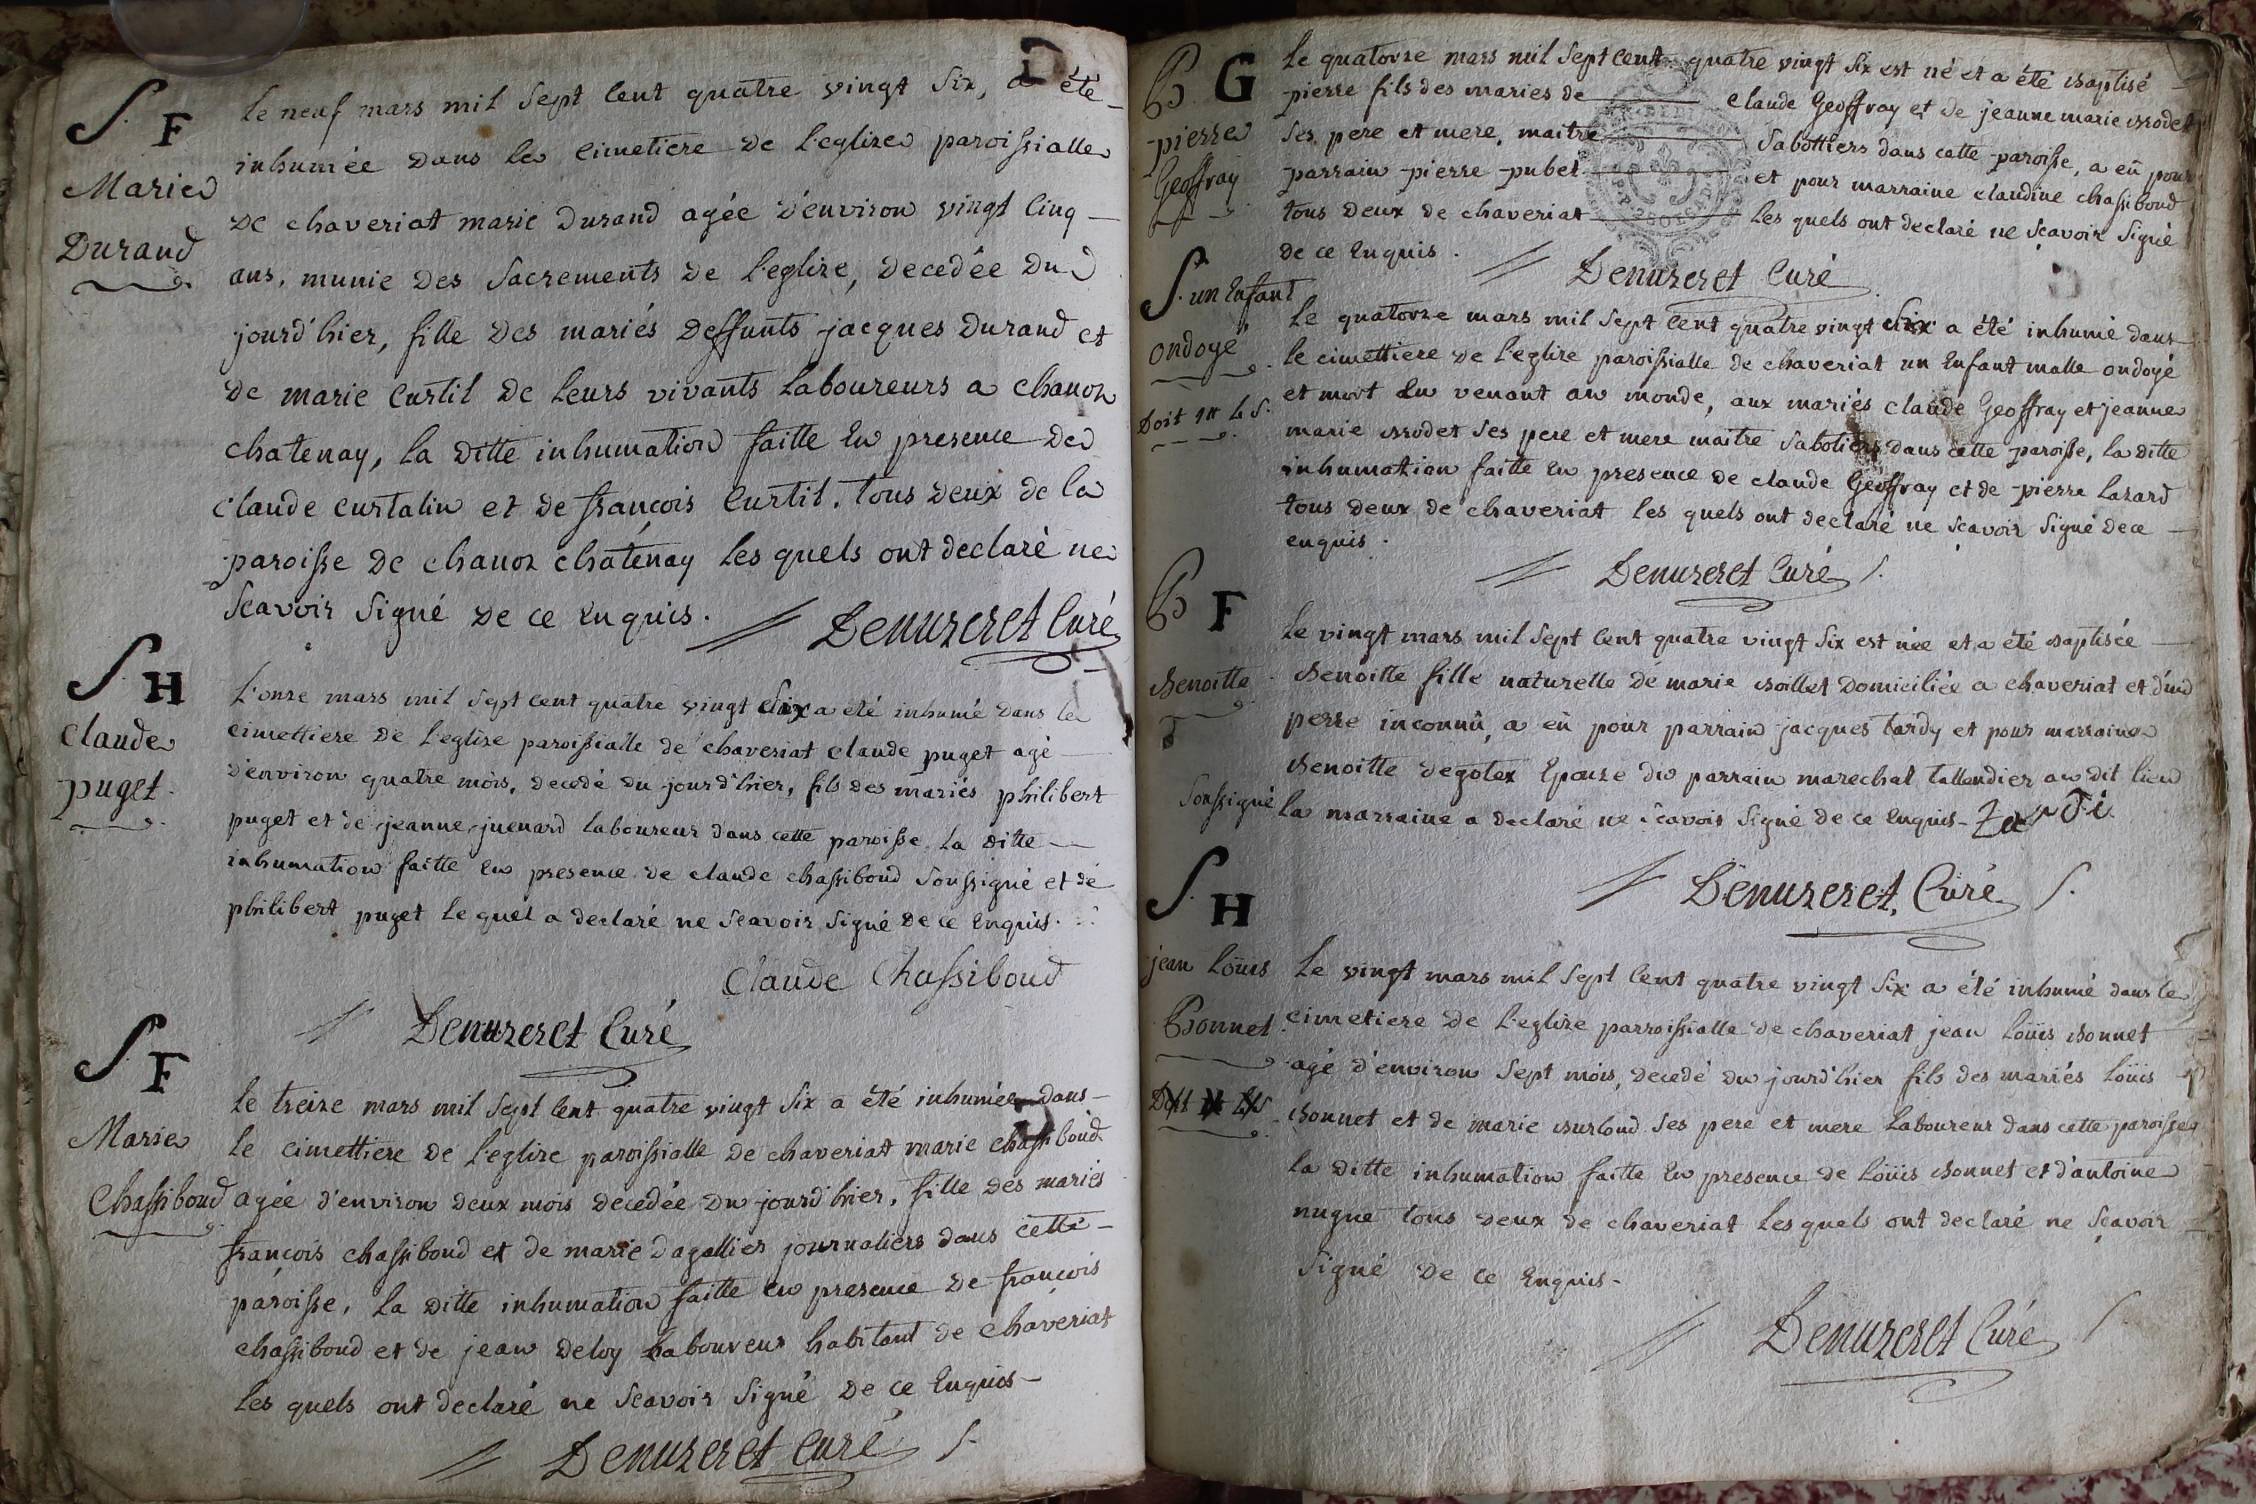 D
S. F
Marie
Durand
Le neuf mars mil Sept Cent quatre vingt Six, a été
inhumée dans le cimetiere de l'eglise paroissialle
de chaveriat marie Durand agée d'environ vingt Cinq
ans, munie des Sacrements de l'eglise, decedée du
jourd'hier, fille des mariés deffunts jacques Durand et
de marie Curtil de leurs vivants Laboureurs a chanoz
chatenay, la ditte inhumation faitte En presence de
claude curtalin et de françois Curtil, tous deux de la
paroisse de chanoz chatenay les quels ont declaré ne
Scavoir Signé de ce Enquis.
Denuzeret Curé
S. H
Claude
puget.
L'onze mars mil Sept Cent quatre vingt Six a été inhumé dans le
cimettiere de l'eglise paroissialle de chaveriat claude puget agé
d'environ quatre mois, decedé du jourd'hier, fils des mariés philibert
puget et de jeanne juenard laboureur dans cette paroisse La ditte
inhumation faitte en presence de claude chassiboud Soussigné et de
philibert puget le quel a declaré ne Scavoir Signé de ce Enquis.
Claude Chassiboud
Denuzeret Curé
S. F
Marie
Chassiboud
le treize mars mil Sept Cent quatre vingt Six a été inhumée dans
le cimettiere de l'eglise paroissialle de chaveriat marie chassiboud
agée d'environ deux mois decedée du jourd'hier, fille des mariés
françois chassiboud et de marie dagallier journaliers dans cette
paroisse, la ditte inhumation faitte en presence de françois
chassiboud et de jean deloy Laboureur habitant de chaveriat
les quels ont declaré ne Scavoir Signé de ce Enquis
Denuzeret Curé
B. G
pierre
Geoffray
Le quatorze mars mil Sept Cent quatre vingt Six est né et a été baptisé
pierre fils des mariés de claude Geoffray et de jeanne marie brodet
Ses pere et mere, maitre Sabottiers dans cette paroisse, a eû pour
parrain pierre pubet et pour marraine claudine chassiboud
tous deux de chaveriat les quels ont declaré ne Scavoir Signé
de ce Enquis.
Denuzeret Curé
S. un Enfant
ondoyé
Doit
Le quatorze mars mil Sept Cent quatre vingt Six a été inhumé dans
le cimettiere de l'eglise paroissialle de chaveriat un Enfant malle ondoyé
et mort En venant au monde, aux mariés claude Geoffray et jeanne
marie brodet Ses pere et mere maitre Sabotiers dans cette paroisse, la ditte
inhumation faitte en presence de claude Geoffray et de pierre Lazard
tous deux de chaveriat les quels ont declaré ne Scavoir Signé de ce
enquis.
Denuzeret Curé
B F
Benoitte
Le vingt mars mil Sept Cent quatre vingt Six est née et a été baptisée
Benoitte fille naturelle de marie boillet Domiciliée a chaveriat et d'un
perre inconnû, a eû pour parrain jacques tardy et pour marraine
Benoitte degolex Epouze du parrain marechal tallendier au dit lieu
Soussigné la marraine a declaré ne Scavoir Signé de ce Enquis. Zardi
Denuzeret, Curé
S. H
jean Loüis
Bonnet
Le vingt mars mil Sept Cent quatre vingt Six a été inhumé dans le
cimetiere de l'eglise parroissialle de chaveriat jean Loüis Bonnet
agé d'environ Sept mois, decedé du jourd'hier fils des mariés Loüis
Bonnet et de marie burloud Ses pere et mere Laboureur dans cette paroisse
la ditte inhumation faitte En presence de Loüis Bonnet et d'antoine
nugue tous deux de chaveriat les quels ont declaré ne Scavoir
Signé de ce Enquis.
Denuzeret Curé